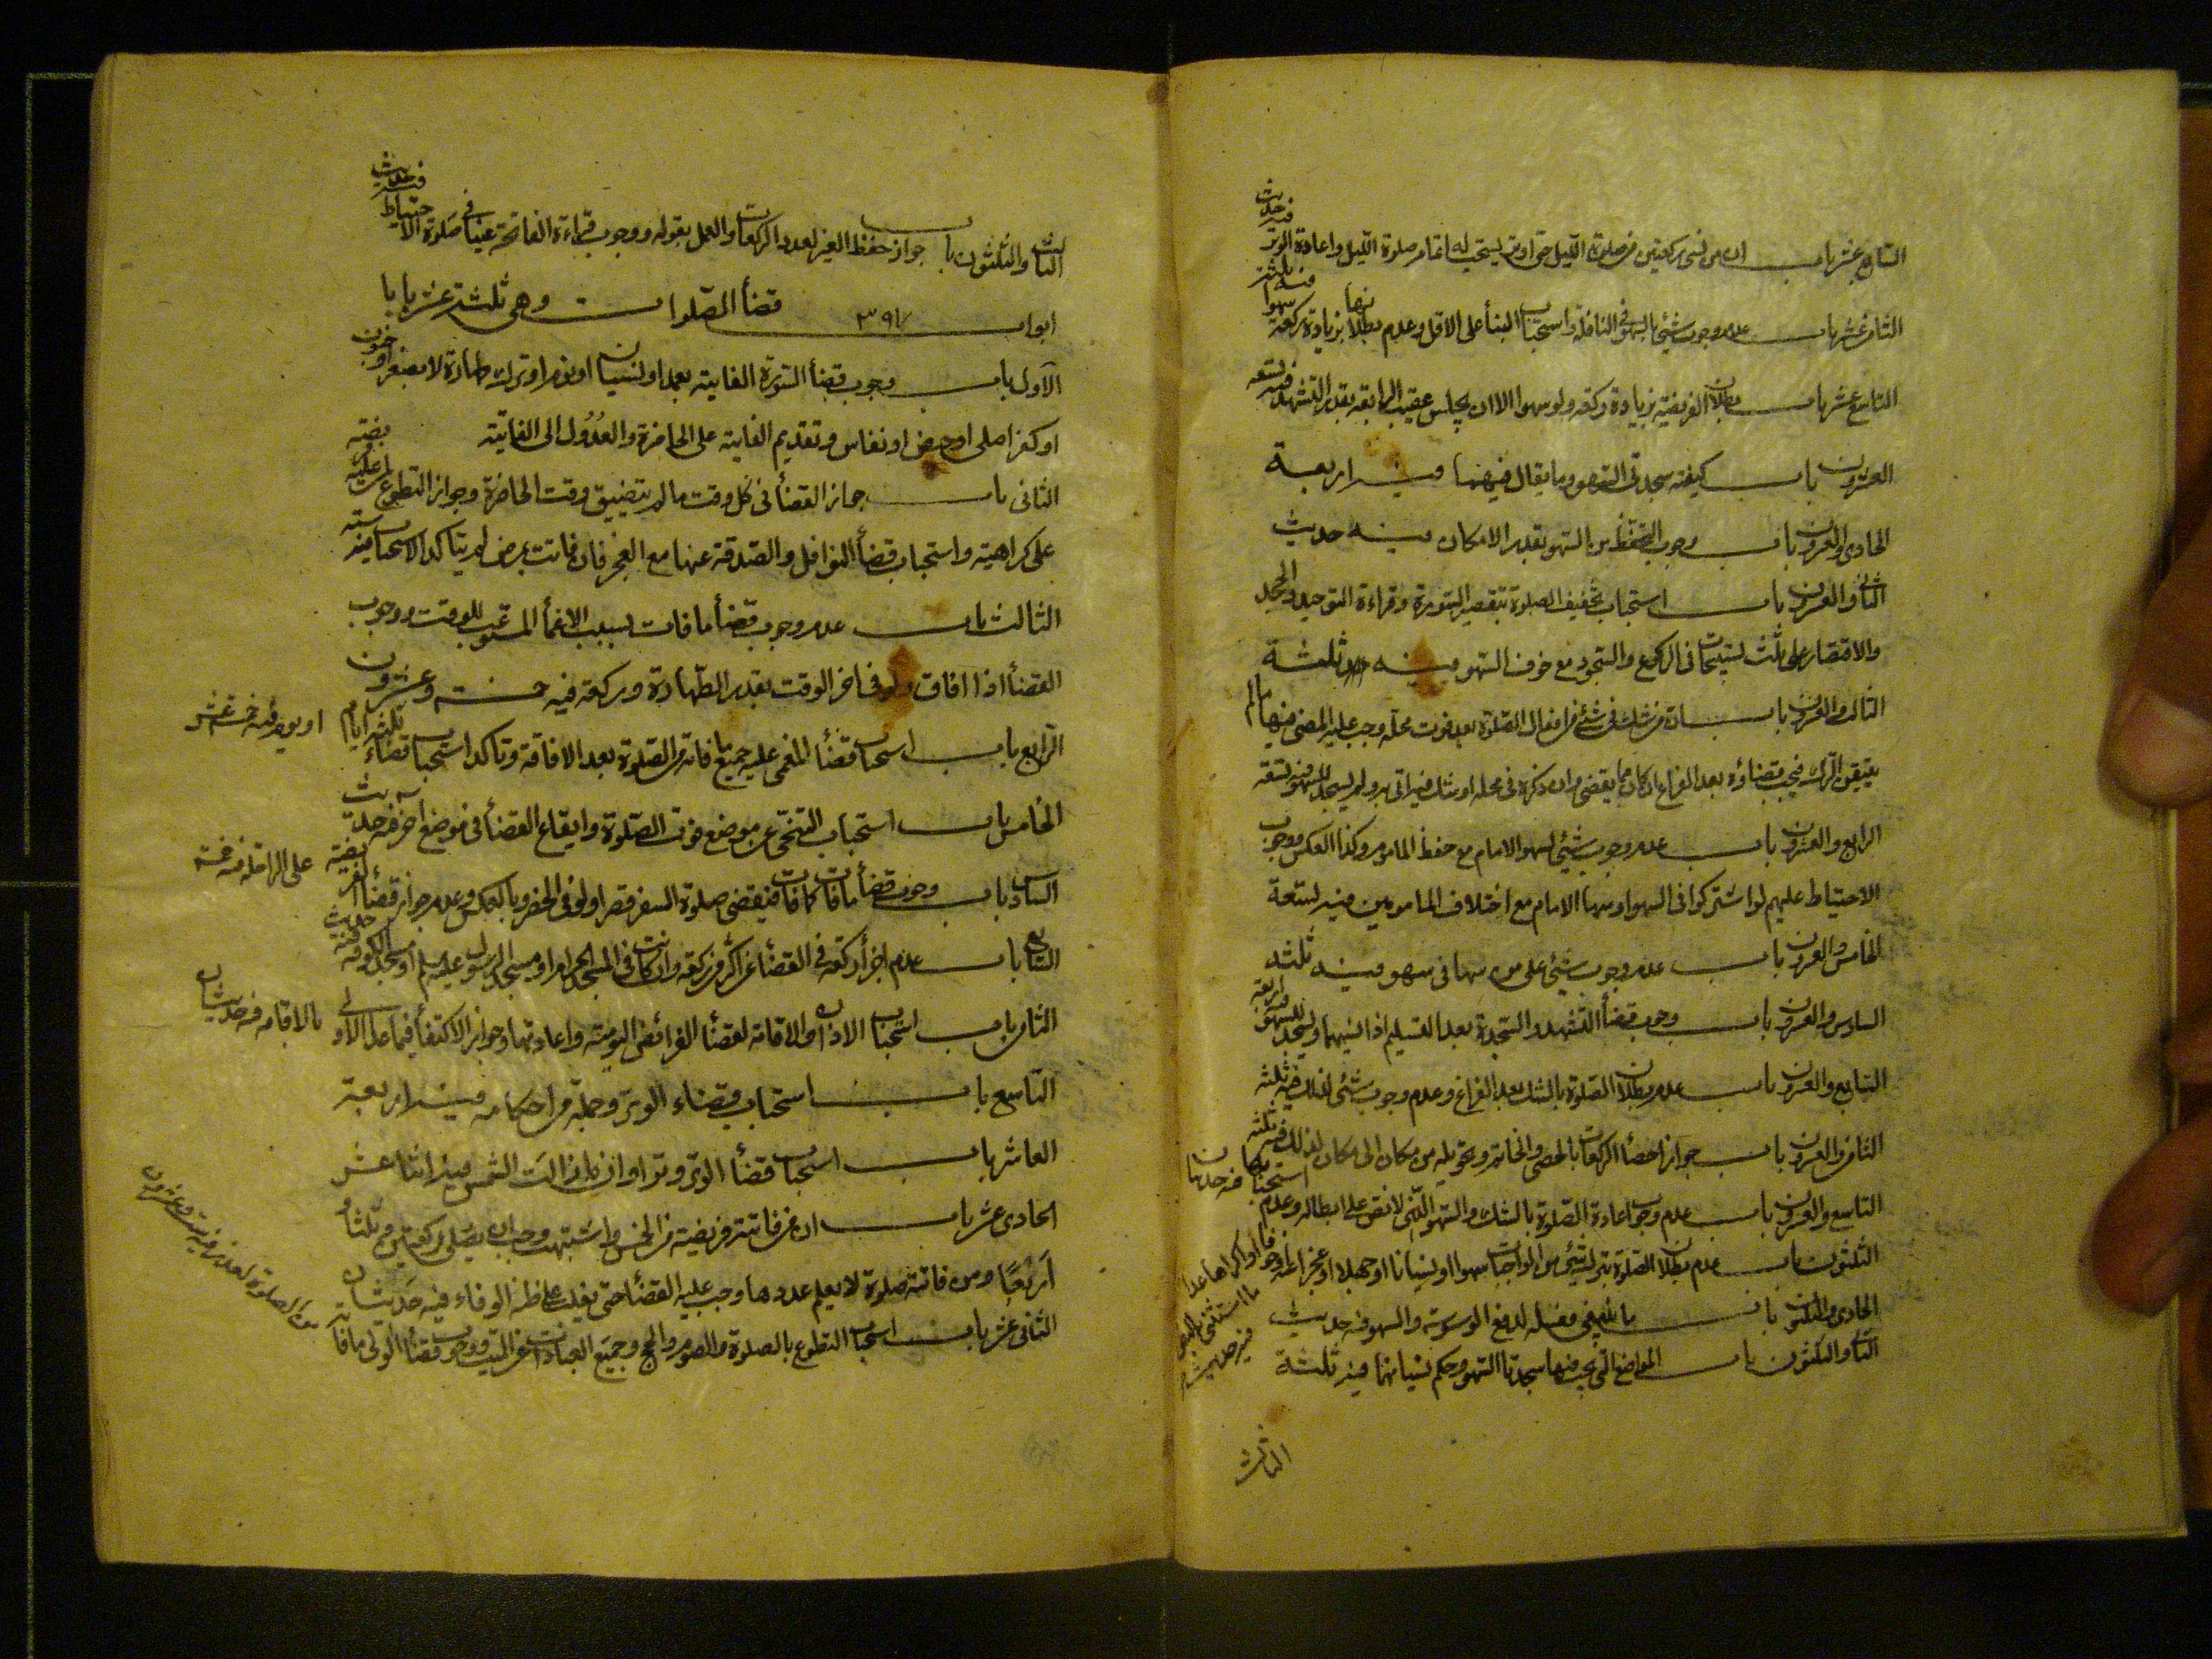 السابع عشر باب ان من نسى ركعتين من صلوة الليل حتى اوتر يستحب له اتمام صلوة الليل واعادة الوتر فيه حديث
الثامن عشر باب عدم وجوب شئ بالسهو فى النافلة واستحباب البناء على الاقل وعدم بطلانها بزيادة ركعة سهوا فيه ثلثة
التاسع عشر باب بطلان الفريضة بزيادة ركعة ولو سهوا الا ان يجلس عقيب الرابعة بقدر التشهد فيه تسعة
العشرون باب كيفية سجدتى السهو وما يقال فيهما فيه اربعة
الحادى والعشرون باب وجوب التحفظ من السهو بقدر الامكان فيه حديث
الثانى والعشرون باب استحباب تخفيف الصلوة بتقصير السورة وقراءة التوحيد والجحد
والاقتصار على ثلث تسبيحات فى الركوع والسجود مع خوف السهو فيه ثلثة
الثالث والعشرون باب ان من شك فى شئ من افعال الصلوة بعد فوت محله وجب عليه المضى فيها ما لم
يتيقن الترك فيجب قضاؤه بعد الفراغ ان كان مما يقضى وان ذكره فى محله او شك فيه اتى به ولم يسجد للسهو فيه تسعة
الرابع والعشرون باب عدم وجوب شئ لسهو الامام مع حفظ الماموم وكذا العكس ووجوب
الاحتياط عليهم لو اشتركوا فى السهو او سها الامام مع اختلاف المامومين فيه تسعة
الخامس والعشرون باب عدم وجوب شئ على من سها فى سهو فيه ثلثة
السادس والعشرون باب وجوب قضأ التشهد والسجدة بعد التسليم اذا نسيهما ويسجد للسهو فيه اربعة
السابع والعشرون باب عدم بطلان الصلوة بالشك بعد الفراغ وعدم وجوب شئ لذلك فيه ثلثة
الثامن والعشرون باب جواز احصأ الركعات بالحصى والخاتم وتحويله من مكان الى مكان لذلك فيه ثلثة
التاسع والعشرون باب عدم وجوب اعادة الصلوة بالشك والسهو الذى لا نص على ابطاله وعدم
استحبابها فيه حديثان
الثلثون باب عدم بطلان الصلوة بترك شئ من الواجبات سهوا او نسيانا او جهلا او عجزا عنه
الحادى والثلثون باب ما ينبغى فعله لدفع الوسوسة والسهو فيه حديث
الثانى والثلثون باب المواضع التى تجب فيها سجدتا السهو وحكم نسيانهما فيه ثلثة
الثالث
الثالث والثلثون باب جواز حفظ الغير لعدد الركعات والعمل بقوله ووجوب قراءة الفاتحة عينا فى صلوة الاحتياط فيه حديث
ابواب قضأ الصلوات وهى ثلثة عشر بابا
الاول باب وجوب قضأ الفريضة الفايتة بعمد او نسيان او نوم او ترك طهارة لا بصغر او جنون
او كفر اصلى او حيض او نفاس وتقديم الفايتة على الحاضرة والعدول الى الفايتة
الثانى باب جواز القضأ فى كل وقت ما لم يتضيق وقت الحاضرة وجواز التطوع لمن عليه فريضة
على كراهية واستحباب قضأ النوافل والصدقة عنها مع العجز فان فاتت بمرض لم يتاكد الاستحباب فيه ستة
الثالث باب عدم وجوب قضأ ما فات بسبب الاغمأ المستوعب للوقت ووجوب
القضأ اذا افاق ولو فى اخر الوقت بقدر الطهارة وركعة فيه خمسة وعشرون
الرابع باب استحباب قضأ المغمى عليه جميع ما فاته من الصلوة بعد الافاقة وتاكد استحباب قضاء ثلثة ايام
او يوم فيه خمسة عشر
الخامس باب استحباب التنحى عن موضع فوت الصلوة وايقاع القضأ فى موضع اخر فيه حديث
السادس باب وجوب قضأ ما فات كما فات فيقضى صلوة السفر قصرا ولو فى الحضر وبالعكس وعدم جواز قضأ الفريضة
على الراحلة فيه خمسة
السابع باب عدم اجزأ ركعة فى القضأ عن اكثر من ركعة وان كانت فى المسجد الحرام او مسجد الرسول او مسجد الكوفة فيه حديث
الثامن باب استحباب الاذان والاقامة لقضأ الفرائض اليومية واعادتها وجواز الاكتفأ فيما عدا الاولى
بالاقامة فيه حديثان
التاسع باب استحباب قضاء الوتر وجملة من احكامه فيه اربعة
العاشر باب استحباب قضأ الوتر وترا وان زالت الشمس فيه اثنا عشر
الحادى عشر باب ان من فاتته فريضة من الخمس واشتبهت وجب ان يصلى ركعتين وثلثا و
اربعا ومن فاتته صلوة لا يعلم عددها وجب عليه القضأ حتى يغلب على ظنه الوفاء فيه حديثان
الثانى عشر باب استحباب التطوع بالصلوة والصوم والحج وجميع العبادات عن الميت ووجوب قضأ الولى ما فاته
من الصلوة لعذر فيه ستة وعشرون